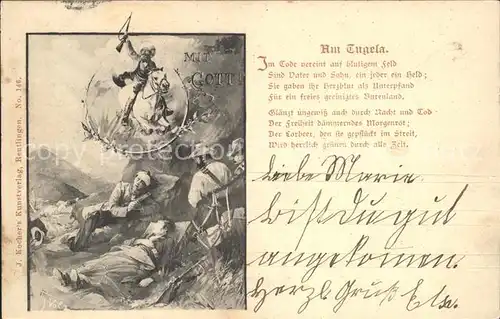 J. Kocher's Kunstverlag, Reutlingen. No. 146.
MIT
GOTT!
Am Tugela.
Im Tode vereint auf blutigem Feld
Sind Vater und Sohn, ein jeder ein Held;
Sie gaben ihr Herzblut als Unterpfand
Für ein freies geeinigtes Burenland.
Glänzt ungewiß auch durch Nacht und Tod
Der Freiheit dämmerndes Morgenrot;
Der Lorbeer, den sie gepflückt im Streit,
Wird herrlich grünen durch alle Zeit.
Liebe Marie.
Bist Du gut
angekommen.
Herzl. Gruß Ela.